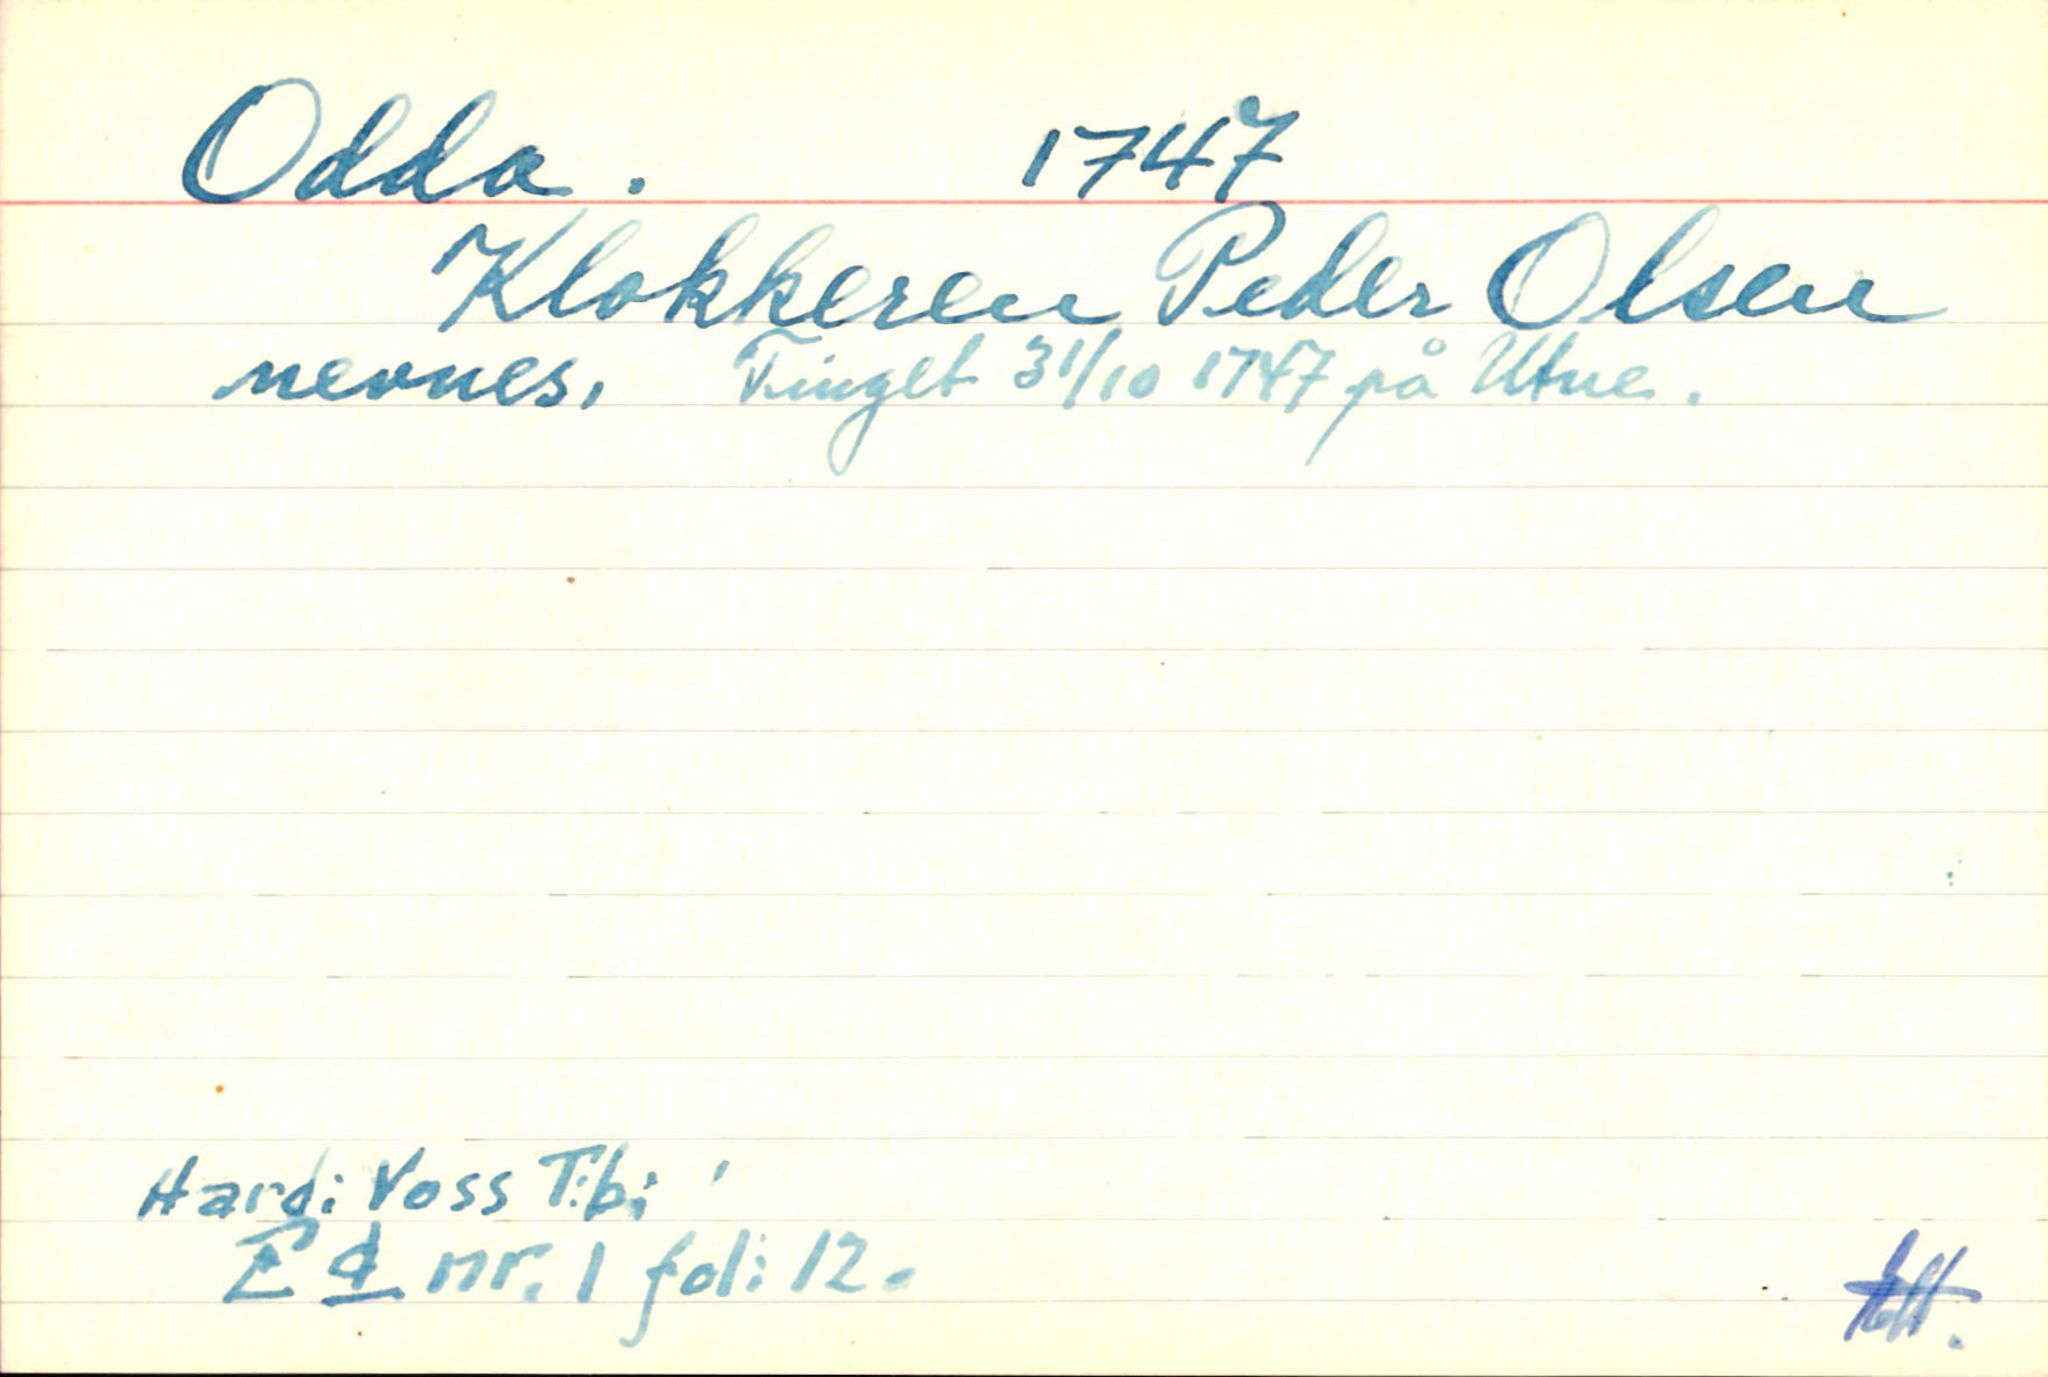 Odda. 1747
Klokkeren Peder Olsen
nevnes. Tinget 31/10 1747 på Utne.
Hardi Voss T.bi
E d nr. 1 fol: 12.